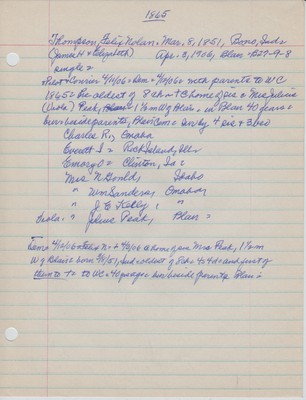 1865
Thompson, Felix Nolan = Mar. 8, 1851, Bono, Ind =
(James H & Elizabeth) Apr. 3, 1906, Blair = B27-9-8
single =
Pilot & Courier 4/11/06 = Dem = 4/19/06 = with parents to WC
1865 = the oldest of 8 ch = + C home of sis = Mrs Julius
(Viola) Peck, 1½ m W of Blair = in Blair 40 years =
bur. beside parents, Blair Cem = surv by 4 sis & 3 bro
Charles R., Omaha
Everett I = Rock Island, Ill
Emory O = Clinton, Ia =
Mrs. N Gould, Idaho
" Wm Sanders, Omaha
" J E Kelly, "
Viola = " Julius Peck, Blair =
Dem = 4/19/06 + Felix N. = + 4/3/06 C home of sis Mrs Peck, 1½ m
W of Blair = born 3/8/51, Ind = oldest of 8 ch = 4s 4d = and first of
them to + = to WC = 40 yrs ago = bur beside parents Blair =